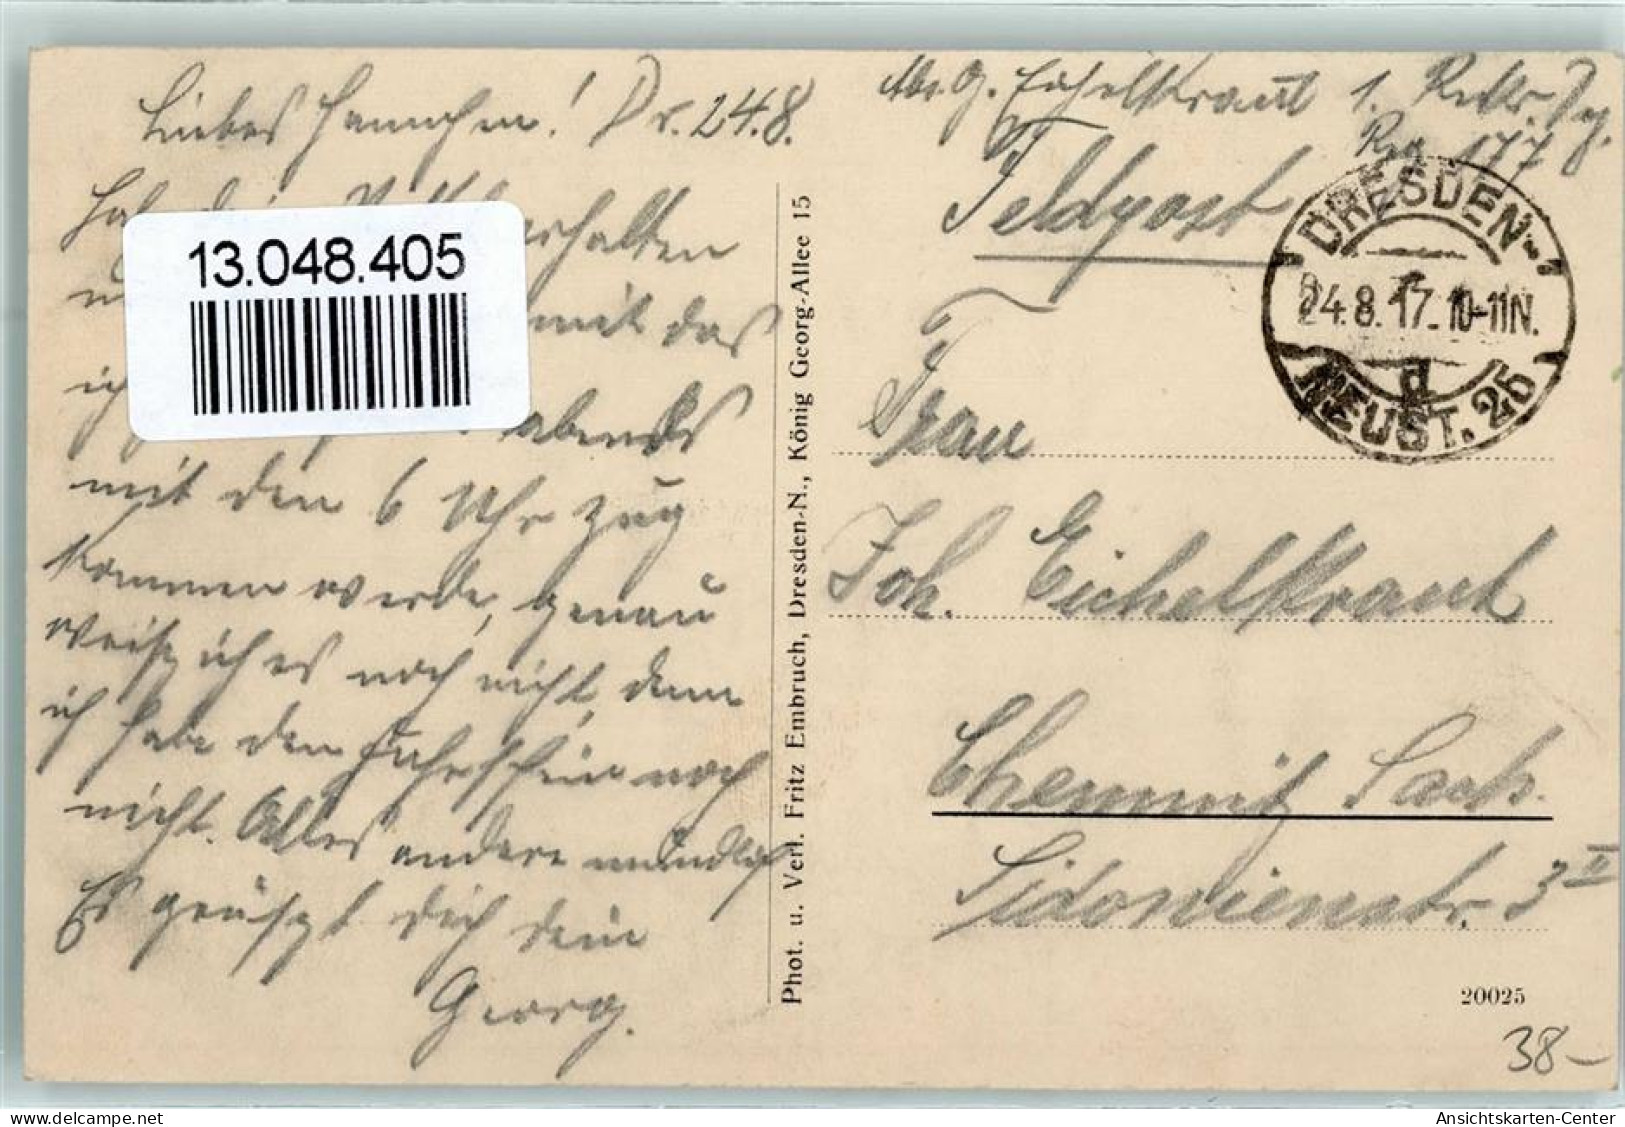 Liebes Hannchen! Dr. 24.8.
Hab dein erhalten
mit das
ich abends
mit den 6 Uhr Zug
kommen werde, genau
weiß ich es noch nicht, denn
ich habe den Fahrschein noch
nicht. Alles andere mündlich
Es grüßt dich dein
Georg.
13.048.405
Phot. u. Verl. Fritz Embruch, Dresden-N., König Georg-Allee 15
Abs. G. Eichelkraut 1. Rekr. Dep.
Reg. 177
Feldpost
DRESDEN-
24.8.17. 10-11N.
d
NEUST. 25
Frau
Joh. Eichelkraut
Chemnitz Sach.
Sidonienstr. 3 II
20025
38-
Ansichtskarten-Center